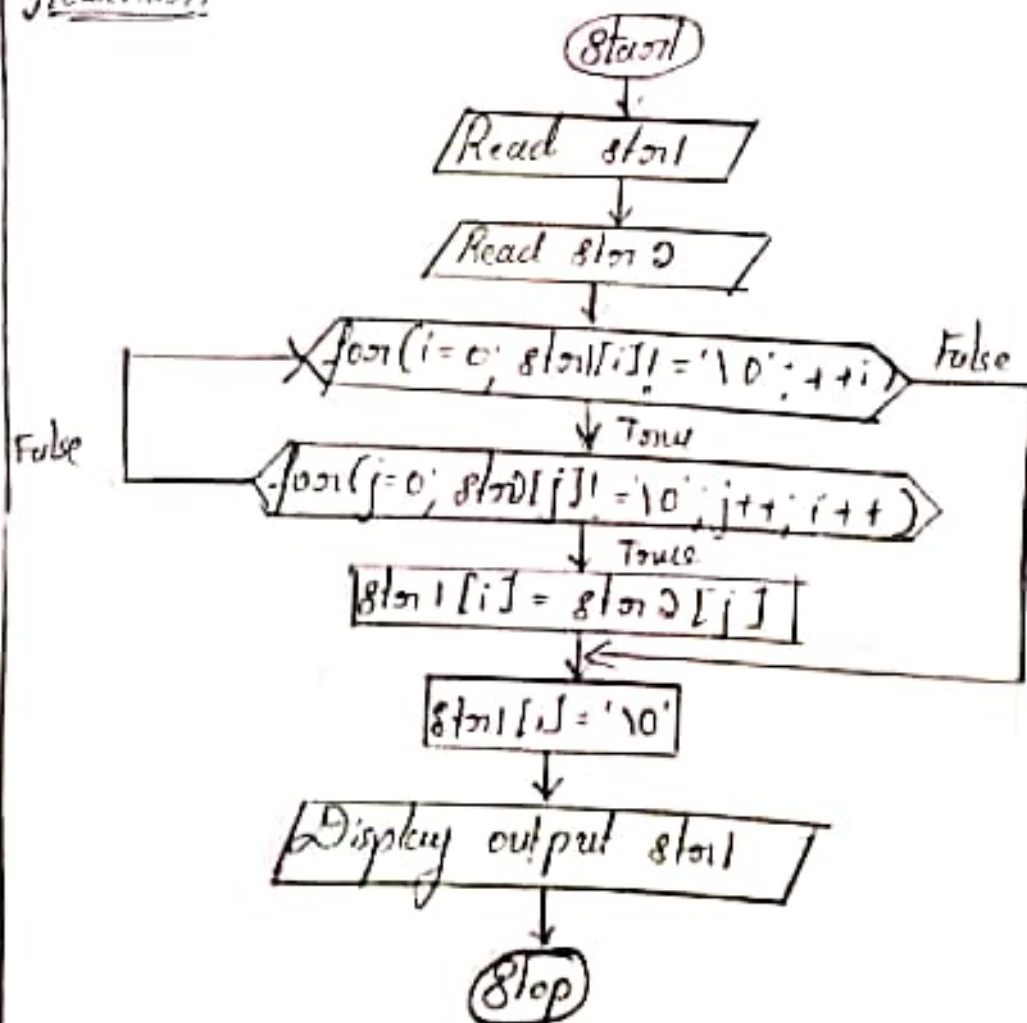 Start
Read str1
Read str2
for(i=0; str1[i]!='\0'; ++i)
False
True
False
for(j=0; str2[j]!='\0'; j++; i++)
True
str1[i] = str2[j]
str1[i]='\0'
Display output str1
Stop